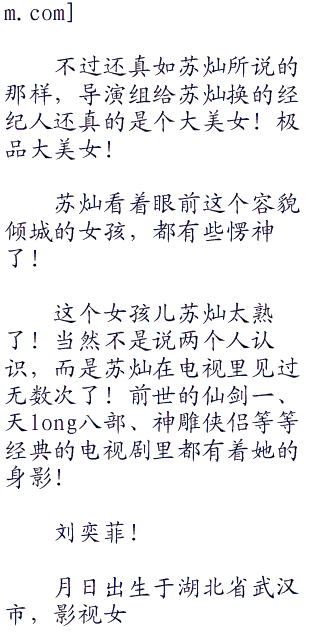 m.com]
不过还真如苏灿所说的
那样，导演组给苏灿换的经
纪人还真的是个大美女！极
品大美女！
苏灿看着眼前这个容貌
倾城的女孩，都有些愣神
了！
这个女孩儿苏灿太熟
了！当然不是说两个人认
识，而是苏灿在电视里见过
无数次了！前世的仙剑一、
天long八部、神雕侠侣等等
经典的电视剧里都有着她的
身影！
刘奕菲！
月日出生于湖北省武汉
市，影视女